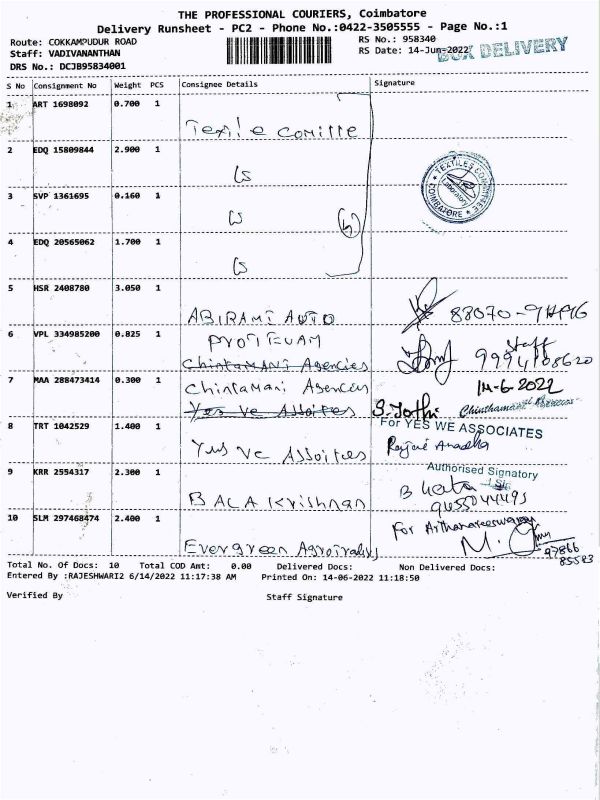 THE PROFESSIONAL COURIERS, Coimbatore
Delivery Runsheet - PC2 - Phone No.:0422-3505555 - Page No.:1
Route: COKKAMPUDUR ROAD
RS No.: 958340
Staff: VADIVANANTHAN
RS Date: 14-Jun-2022
BOX DELIVERY
DRS No.: DCJB95834001
S No Consignment No Weight PCS Consignee Details Signature
1 ART 1698092 0.700 1
Textile Comitte
2 EDQ 15809844 2.900 1
TEXTILES COMMITTEE
Laboratory
COIMBATORE
3 SVP 1361695 0.160 1
4 EDQ 20565062 1.700 1
5 HSR 2408780 3.050 1
ABIRAMI AUTO
6 VPL 334985200 0.825 1
Staff
Chintamani Agencies 9994108620
7 MAA 288473414 0.300 1
Chintamani Agencies 14-6-2022
Yes Ve Assoites S. Jothi
For YES WE ASSOCIATES
8 TRT 1042529 1.400 1
Yes Ve Assoites
Authorised Signatory
9 KRR 2554317 2.300 1
BALAKrishnan
10 SLM 297468474 2.400 1
Evergreen
97866
85583
Total No. Of Docs: 10 Total COD Amt: 0.00 Delivered Docs: Non Delivered Docs:
Entered By :RAJESHWARI2 6/14/2022 11:17:38 AM Printed On: 14-06-2022 11:18:50
Verified By Staff Signature